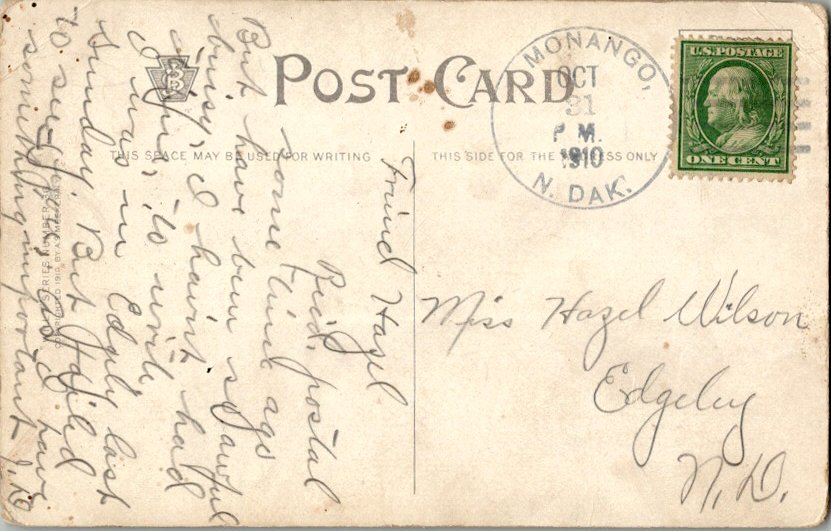 POST CARD
THIS SPACE MAY BE USED FOR WRITING
THIS SIDE FOR THE ADDRESS ONLY
MONANGO,
OCT
31
P M.
1910
N. DAK.
U.S. POSTAGE
ONE CENT
Miss Hazel Wilson
Edgeley
N.D.
Friend Hazel
Recd. postal
some time ago
But have been so awful
buisy, I haint had
time, to write
I was in Edgly last
Sunday. But failed
to see you, as I have
something important
SERIES NUMBER
COPYRIGHTED 1910 BY